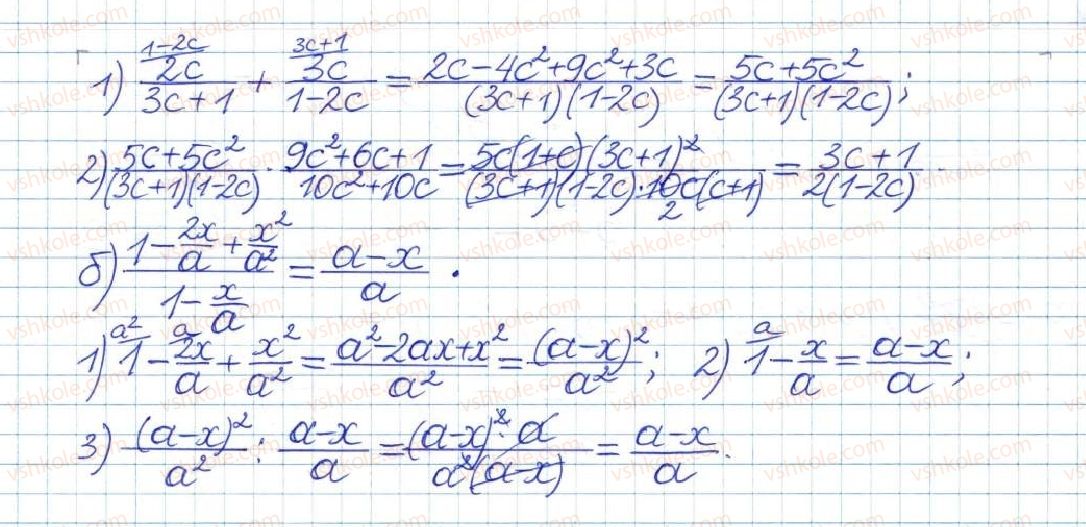 1) \frac{\overset{1-2c}{2c}}{3c+1} + \frac{\overset{3c+1}{3c}}{1-2c} = \frac{2c-4c^2+9c^2+3c}{(3c+1)(1-2c)} = \frac{5c+5c^2}{(3c+1)(1-2c)};
2) \frac{5c+5c^2}{(3c+1)(1-2c)} · \frac{9c^2+6c+1}{10c^2+10c} = \frac{5c(1+c)(3c+1)^2}{(3c+1)(1-2c)·10c(c+1)} = \frac{3c+1}{2(1-2c)}.
б) \frac{1-\frac{2x}{a}+\frac{x^2}{a^2}}{1-\frac{x}{a}} = \frac{a-x}{a}.
1) \overset{a^2}{1} - \frac{\overset{a}{2x}}{a} + \frac{x^2}{a^2} = \frac{a^2-2ax+x^2}{a^2} = \frac{(a-x)^2}{a^2}; 2) \overset{a}{1} - \frac{x}{a} = \frac{a-x}{a};
3) \frac{(a-x)^2}{a^2} : \frac{a-x}{a} = \frac{(a-x)^2·a}{a^2(a-x)} = \frac{a-x}{a}.
vshkole.com